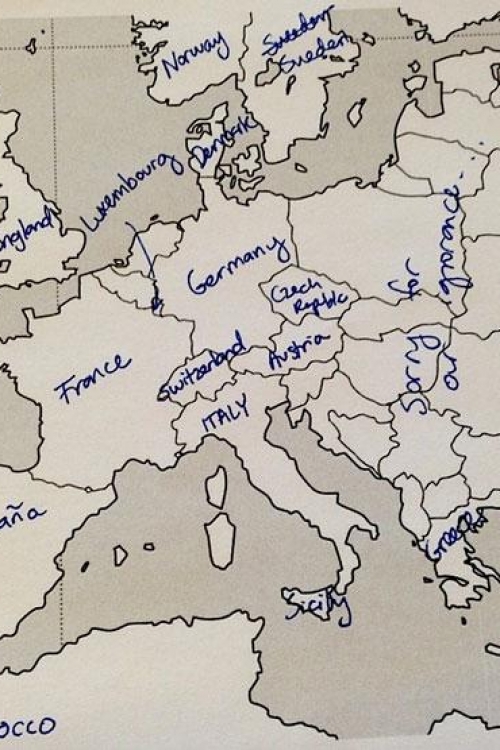 Norway
Sweden
Sweden
Denmark
Luxembourg
ngland
Germany
Czech
Repblic
for
ignorance...
Sorry
our
Switzerland
Austria
France
ITALY
aña
Greece
Sicily
occo